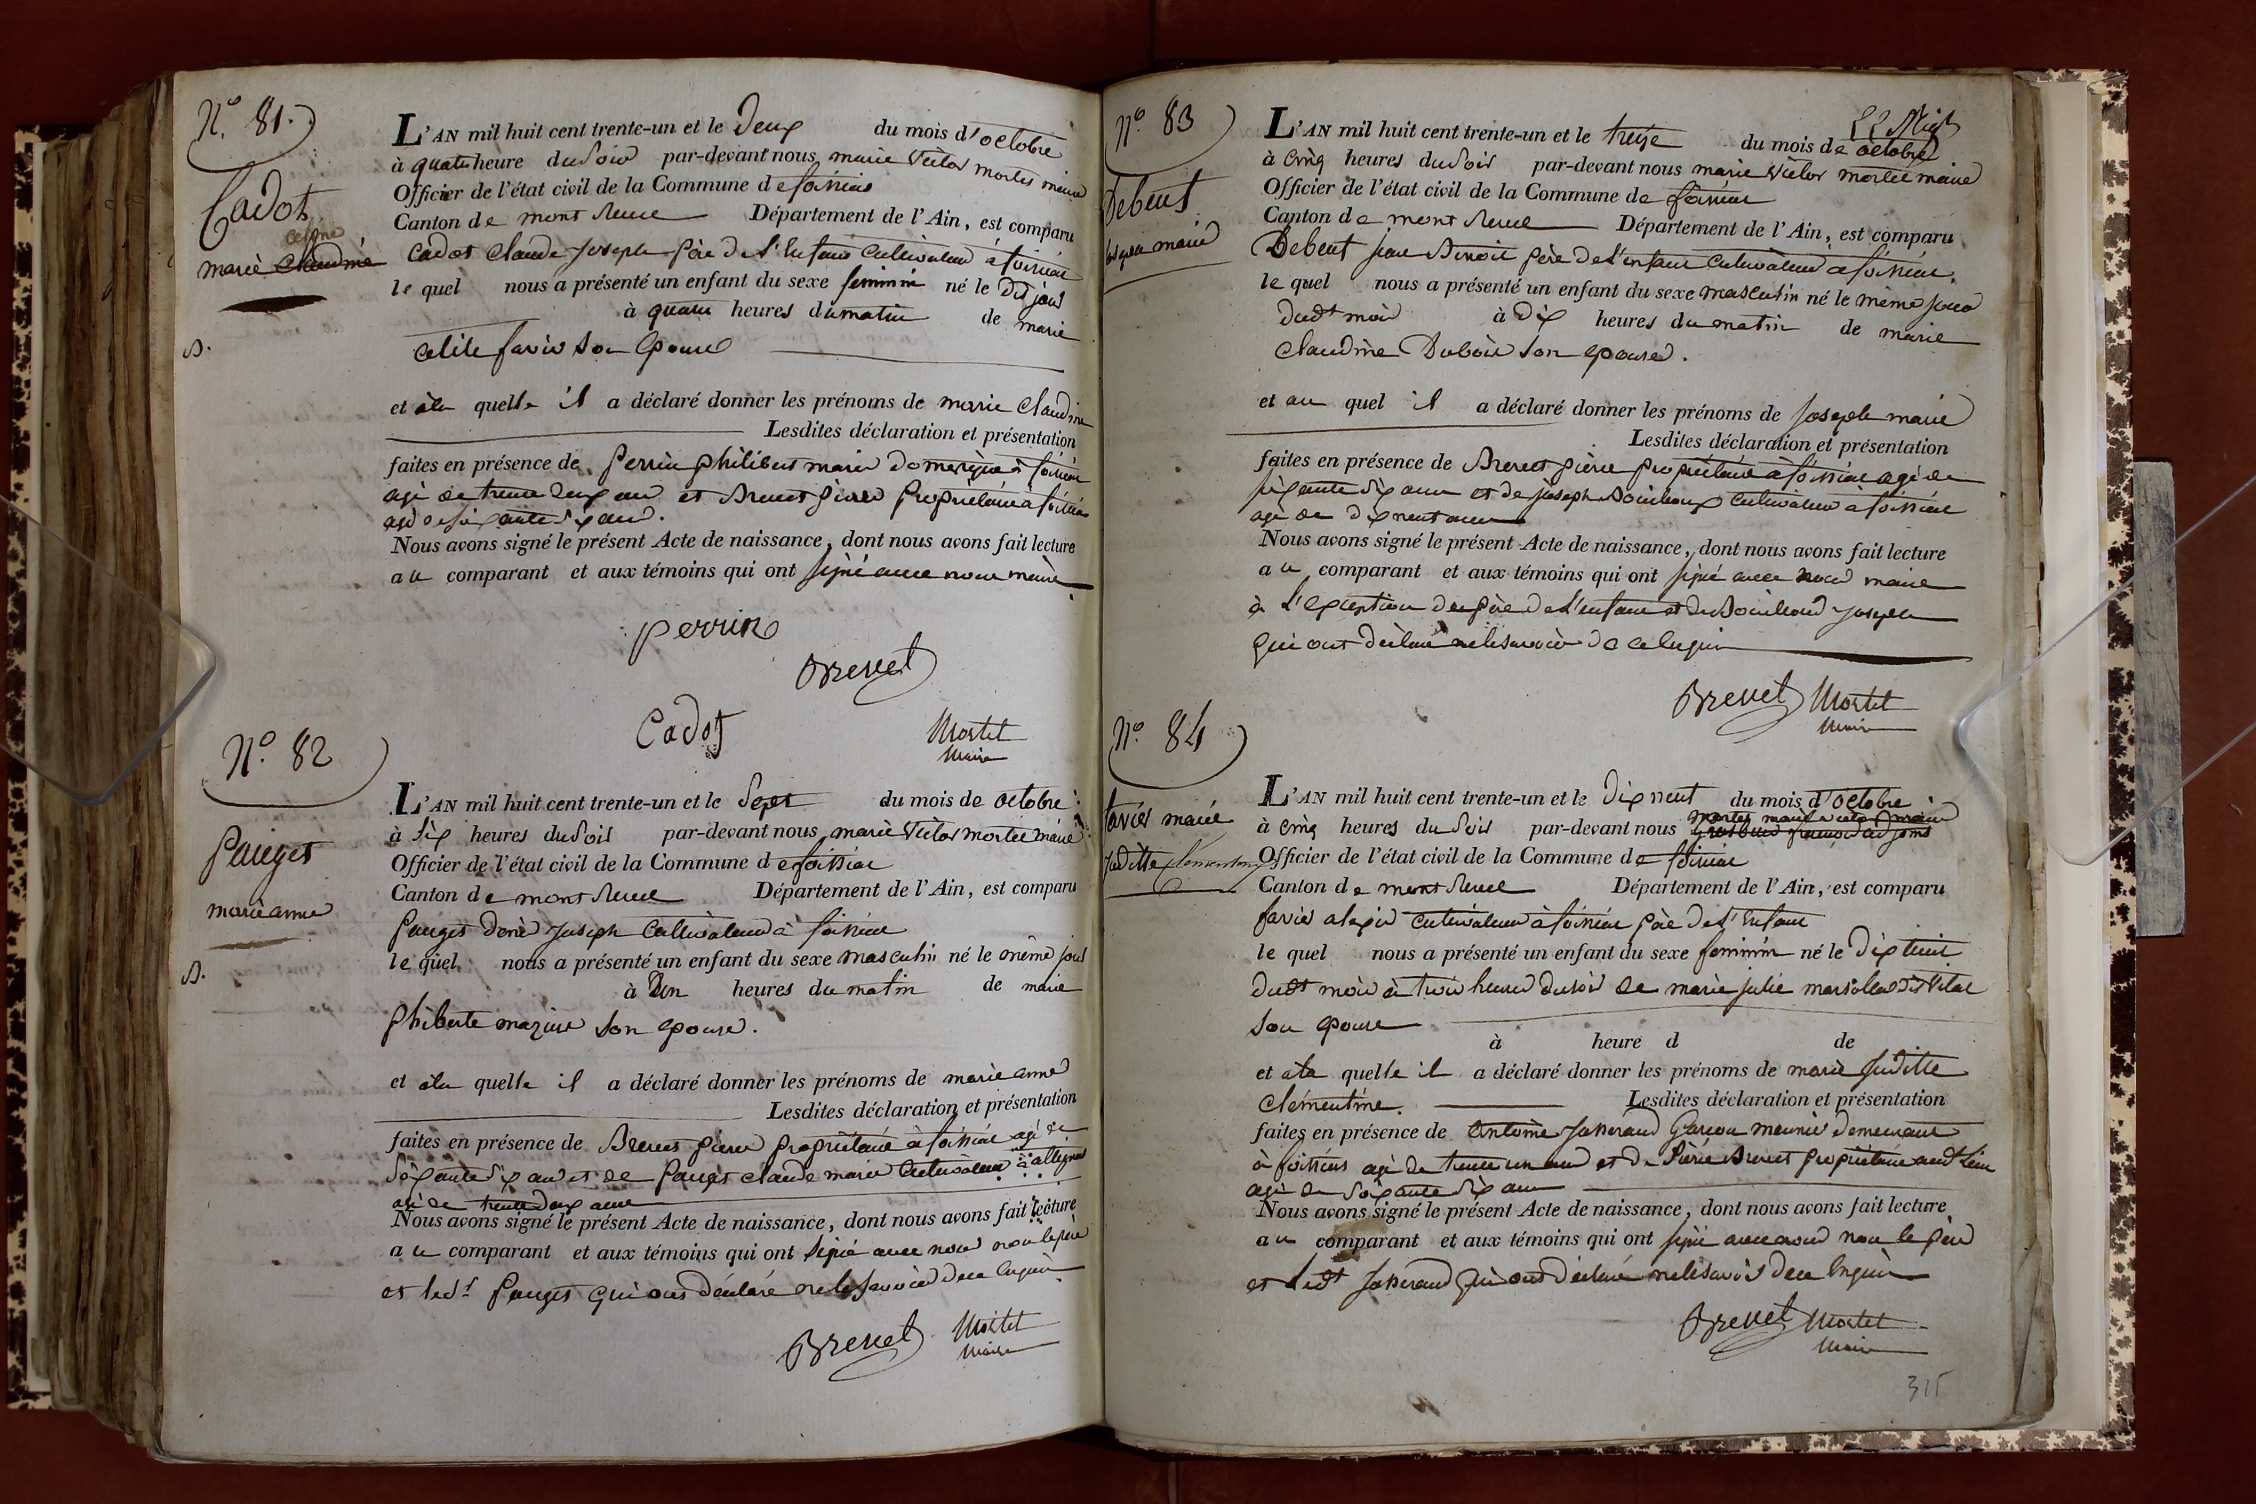 N.º 81.
Cadot
celine
marie Claudine
D.
L'AN mil huit cent trente-un et le Deux du mois d'octobre
à quatre heure du Soir par-devant nous marie Victor Mortel maire
Officier de l'état civil de la Commune de foissiat
Canton de mont Revel Département de l'Ain, est comparu
Cadot Claude Joseph Père de L'Enfant Cultivateur à foissiat
le quel nous a présenté un enfant du sexe feminin né le Dit jour
à quatre heures du matin de marie
celile favier Son Epouse
et à la quelle il a déclaré donner les prénoms de marie Claudine
Lesdites déclaration et présentation
faites en présence de Perrin philibert marie à foissiat
agé de trente Deux ans et Brevet Pierre Propriétaire à foissiat
agé de soixante six ans.
Nous avons signé le présent Acte de naissance, dont nous avons fait lecture
au comparant et aux témoins qui ont signé avec nous maire
perrin
Brevet
Cadot
Mortel
Maire
N.º 82
Pauget
marie anne
D.
L'AN mil huit cent trente-un et le Sept du mois de octobre
à Six heures du Soir par-devant nous marie Victor mortel maire
Officier de l'état civil de la Commune de foissiat
Canton de mont Revel Département de l'Ain, est comparu
Pauget Denis Joseph Cultivateur à foissiat
le quel nous a présenté un enfant du sexe masculin né le même jour
à Un heures du matin de marie
Phiberte mazuir Son Epouse.
et à la quelle il a déclaré donner les prénoms de marie anne
Lesdites déclaration et présentation
faites en présence de Brevet Pierre Propriétaire à foissiat agé de
Soixante Six ans et de Pauget Claude marie Cultivateur
agé de trente deux ans
Nous avons signé le présent Acte de naissance, dont nous avons fait lecture
au comparant et aux témoins qui ont Signé avec nous non le père
et led.t Pauget qui ont déclaré ne le Savoir de ce Enquis
Brevet
Mortel
Maire
N.º 83
Debeut
Joseph marie
L'AN mil huit cent trente-un et le treize du mois de octobre
à cinq heures du Soir par-devant nous marie Victor mortel maire
Officier de l'état civil de la Commune de foissiat
Canton de mont Revel Département de l'Ain, est comparu
Debeut Jean Benoit père de L'enfant Cultivateur à foissiat
le quel nous a présenté un enfant du sexe masculin né le même jour
dud.t mois à Dix heures du matin de marie
Claudine Dubois Son Epouse.
et au quel il a déclaré donner les prénoms de Joseph marie
Lesdites déclaration et présentation
faites en présence de Brevet Pierre Propriétaire à foissiat agé de
soixante Six ans et de Joseph Cultivateur à foissiat
agé de dix neuf ans
Nous avons signé le présent Acte de naissance, dont nous avons fait lecture
au comparant et aux témoins qui ont signé avec nous maire
à L'exception du père de L'enfant et du Joseph
qui ont déclaré ne le savoir de ce Enquis
Brevet
Mortel
Maire
N.º 84
favier marie
Juditte Clementine
L'AN mil huit cent trente-un et le Dix neuf du mois d'octobre
mortel marie victor maire
à cinq heures du Soir par-devant nous
Officier de l'état civil de la Commune de foissiat
Canton de mont Revel Département de l'Ain, est comparu
favier alexis Cultivateur à foissiat père de L'Enfant
le quel nous a présenté un enfant du sexe feminin né le Dix huit
dudt mois à trois heures du soir de marie Julie
Son Epouse
à heure d de
et à la quelle il a déclaré donner les prénoms de marie Juditte
Clementine. Lesdites déclaration et présentation
faites en présence de Antoine Josserand Garçon meunier demeurant
à foissiat agé de trente un ans et de Pierre Brevet Propriétaire aud.t Lieu
agé de Soixante Six ans
Nous avons signé le présent Acte de naissance, dont nous avons fait lecture
au comparant et aux témoins qui ont signé avec nous non le père
et Ledt Josserand qui ont déclaré ne le savoir de ce Enquis
Brevet
Mortel
Maire
315